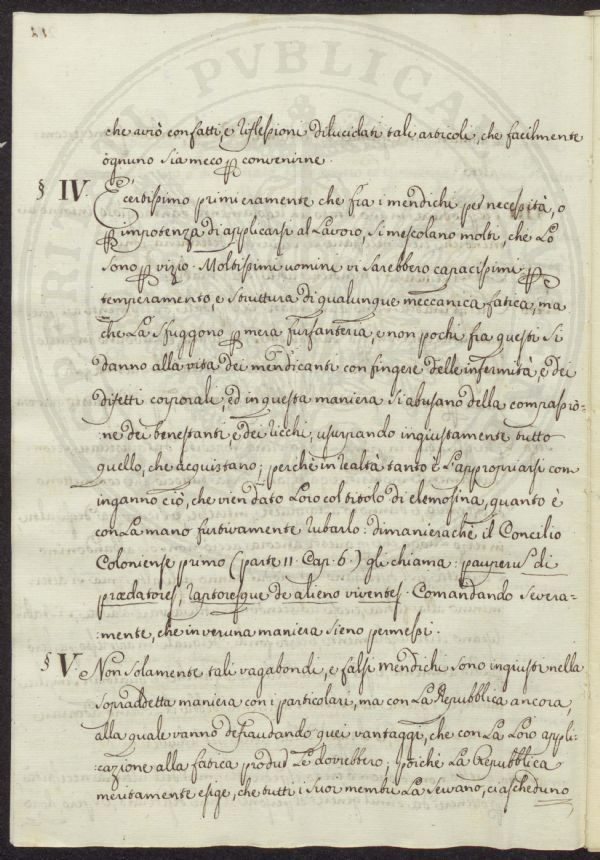 che avrò con fatti, e riflessioni dilucidati tale articoli, che facilmente
ognuno sia meco p convenirne.
§ IV. È certissimo primieramente che fra i mendichi per necessità, o
p impotenza di applicarsi al Lavoro, si mescolano molti, che Lo
sono p vizio. Moltissimi uomini vi sarebbero capacissimi p
temperamento, e struttura di qualunque meccanica fatica, ma
che La sfuggono p mera furfanteria, e non pochi fra questi si
danno alla vita dei mendicanti con fingere delle infermità, e dei
difetti corporali, ed in questa maniera si abusano della compassio-
:ne dei benestanti, e dei ricchi, usurpando ingiustamente tutto
quello, che acquistano; perchè in realtà tanto è L'appropriarsi con
inganno ciò, che vien dato Loro col titolo di elemosina, quanto è
con La mano furtivamente rubarlo: dimanierachè il Concilio
Coloniense primo (parte 11. Cap. 6.) gli chiama: pauperum di
prædatores, raptoresque de alieno viventes. Comandando severa-
:mente, che in veruna maniera sieno permessi.
§ V. Non solamente tali vagabondi, e falsi mendichi sono ingiusti nella
sopraddetta maniera con i particolari, ma con La Repubblica ancora,
alla quale vanno defraudando quei vantaggi, che con La Loro appli-
:cazione alla fatica produr Le dovrebbero; poichè La Repubblica
meritamente esige, che tutti i suoi membri La servano, ciascheduno